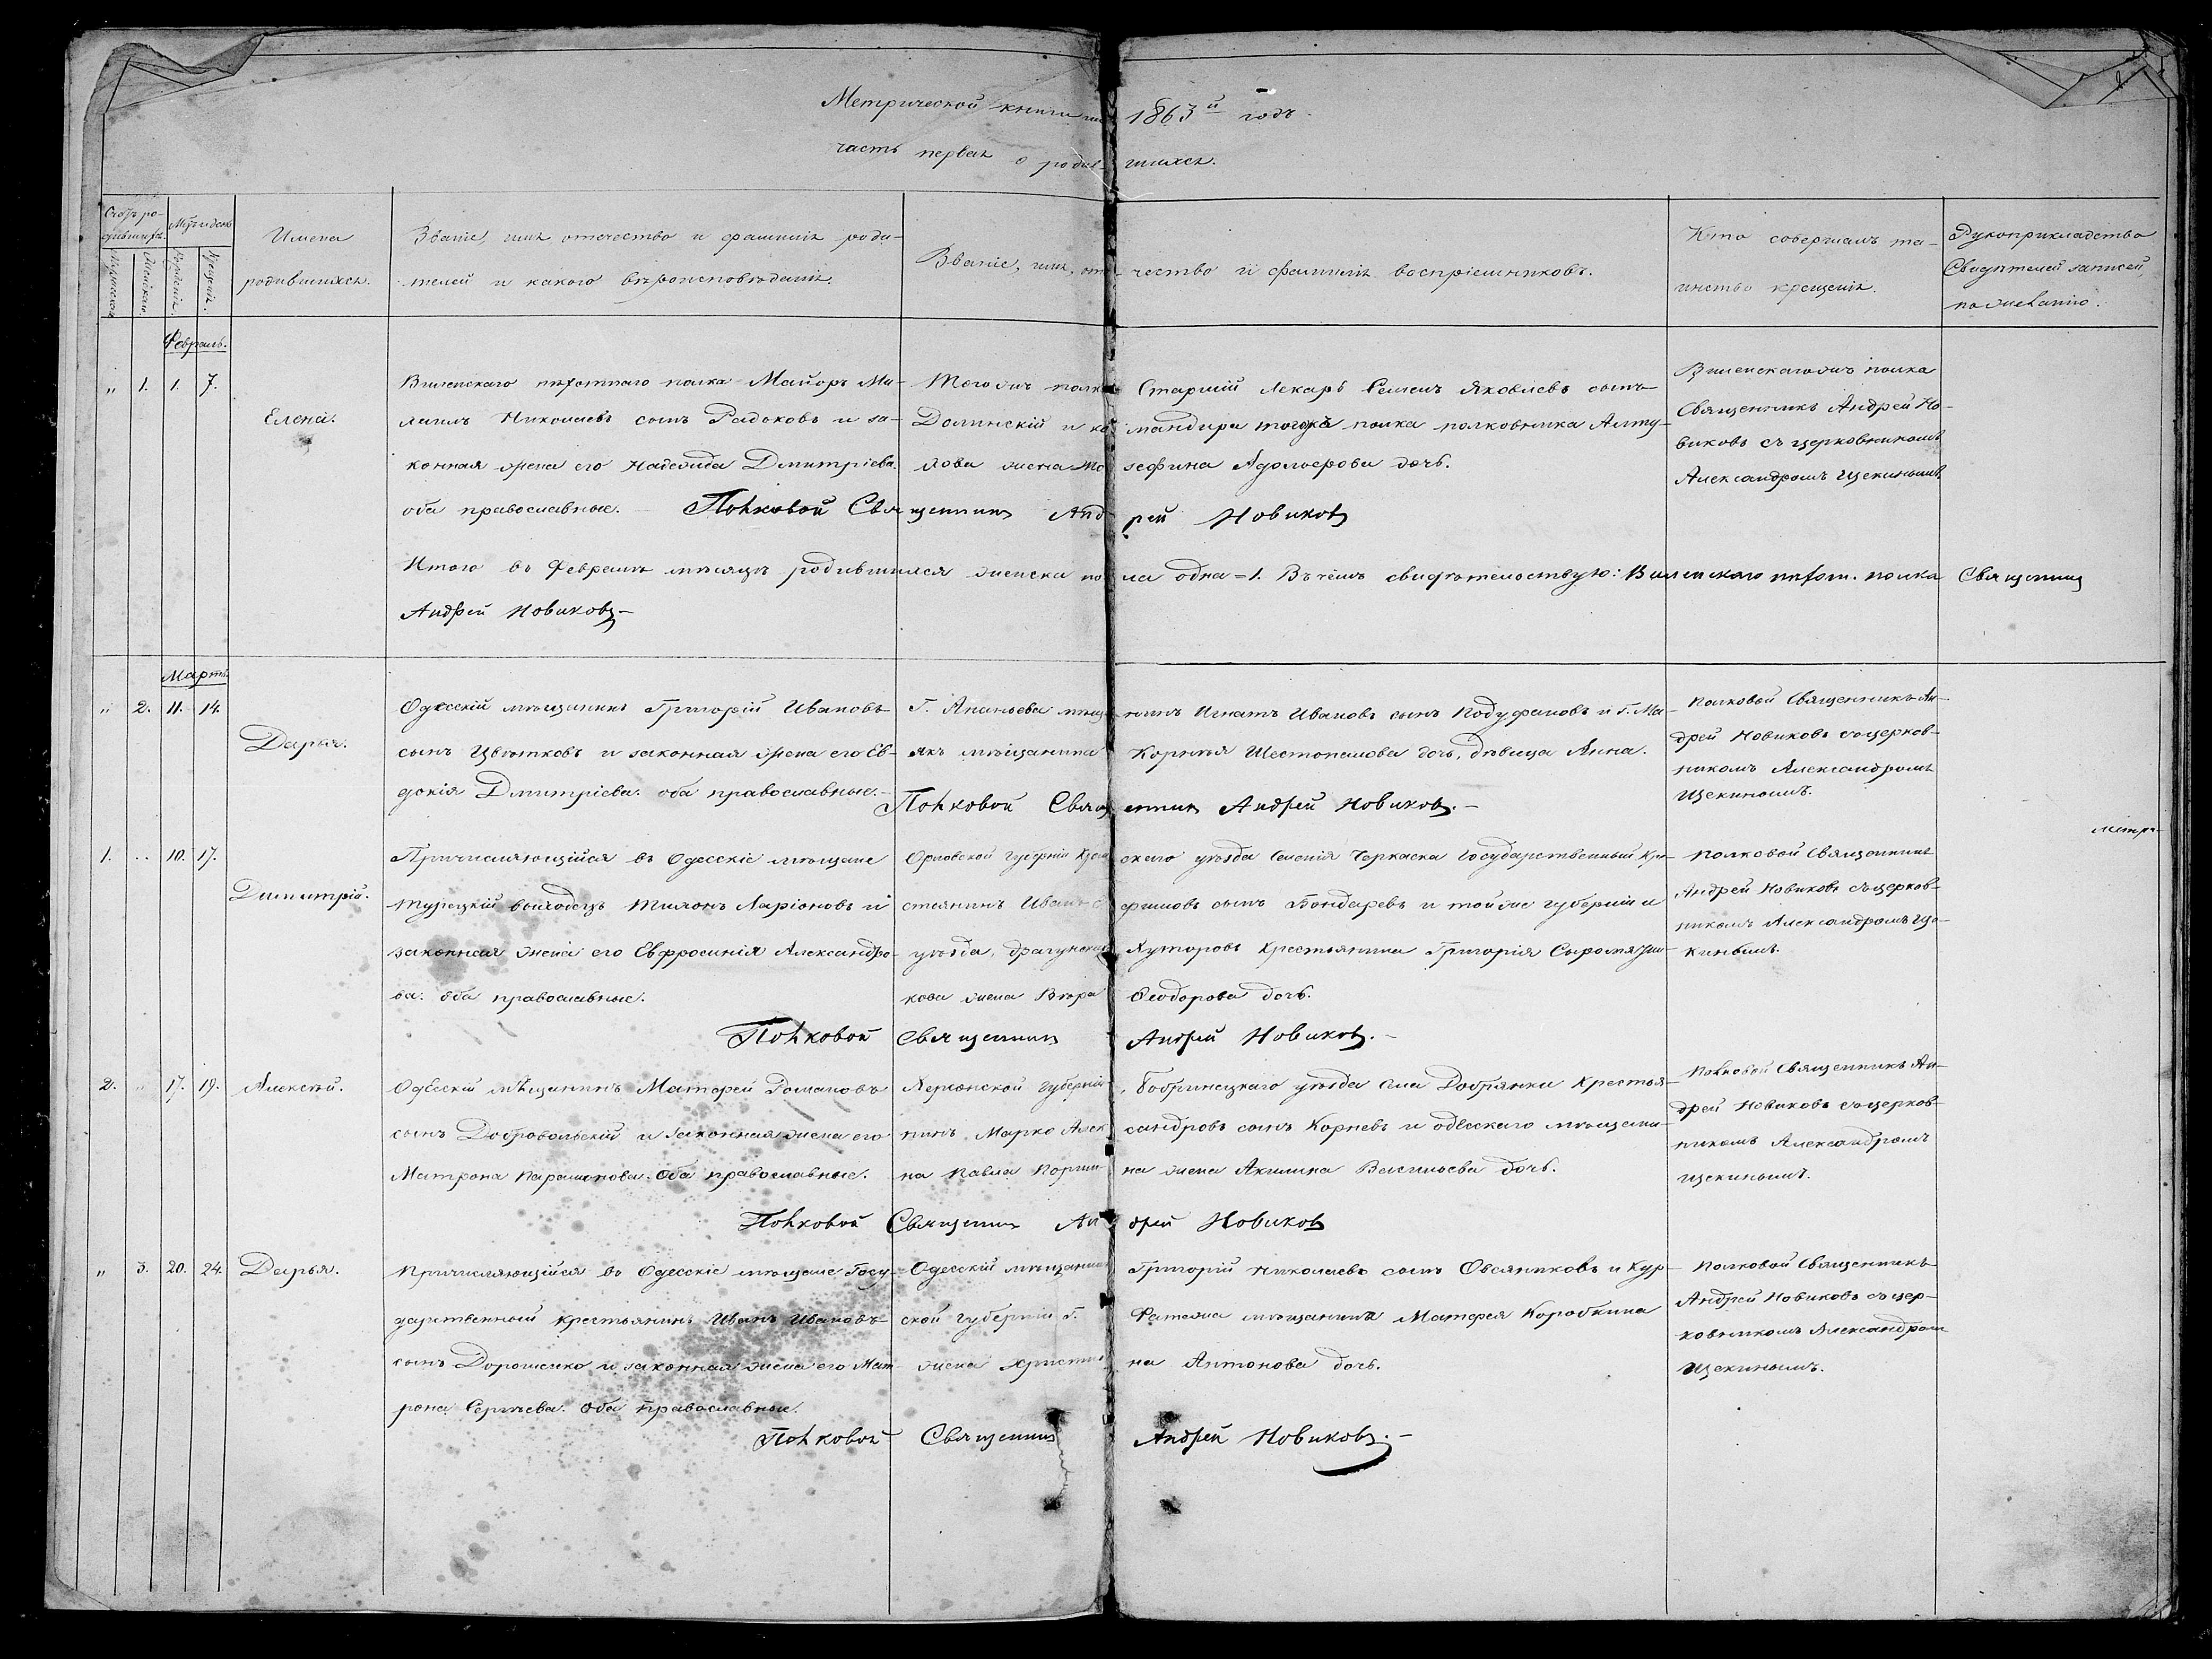 Метрической книги на 1863й годъ.
часть первая о родив- шихся.
Счетъ ро-
дившихся.
Мужескаго
Женскаго
Мѣс. и день
Рожденія
Крещенія.
Имена
родившихся.
Званіе, имя отечество и фамилія роди-
телей и какого вѣроисповѣданія.
Званіе, имя, оте- чество и фамилія воспріемниковъ.
Кто совершалъ та-
инство крещенія.
Рукоприкладство
Свидѣтелей записей,
по желанію.
Февраль.
„ 1. 1. 7.
Елена.
Виленскаго пѣхотнаго полка Маіоръ Ми-
хаилъ Николаевъ сынъ Радоковъ и за-
конная жена его Надежда Дмитріева.
оба православные.
Того же полка Старшій Лекарь Семенъ Яковлевъ сынъ
Долинскій и ко мандира тогоже полка полковника Алту-
хова жена Жо зефина Адольфова дочь.
Виленскагожъ полка
Священникъ Андрей Но-
виковъ съ церковникомъ
Александромъ Щекинымъ.
Полковой Священникъ Анд рей Новиковъ
Итого въ Февралѣ мѣсяцѣ родившихся женска по ла одна = 1. Въ чемъ свидѣтельствую: Виленскаго пѣхот. полка Священникъ
Андрей Новиковъ –
Мартъ.
„ 2. 11. 14.
Дарья.
Одесскій мѣщанинъ Григорій Ивановъ
сынъ Цвѣтковъ и законная жена его Ев-
докія Дмитріева. оба православные. –
Г. Ананьева мѣща нинъ Игнатъ Ивановъ сынъ Подуфаловъ и Г. Ма-
якъ мѣщанина Корнѣя Шестопалова дочь, дѣвица Анна.
Полковой Священникъ Ан-
дрей Новиковъ съ церков-
никомъ Александромъ
Щекинымъ.
Полковой Священникъ Андрей Новиковъ. –
1. „ 10. 17.
Димитрій.
Причисляющійся въ Одесскіе мѣщане
Турецкій выходецъ Тихонъ Ларіоновъ и
законная жена его Евфросинія Александро-
ва. оба православные.
Орловской губерніи Кром скаго уѣзда Селенія Черкаска Государственный кре-
стьянинъ Иванъ фимовъ сынъ Бондаревъ и тойже губерніи и
уѣзда, драгунскихъ Хуторовъ Крестьянина Григорія Сыромятни-
кова жена Вѣра Ѳеодорова дочь.
Полковой Священникъ
Андрей Новиковъ съ церков-
никомъ Александромъ Ще-
кинымъ.
метри-
Полковой Священникъ Андрей Новиковъ. –
2. „ 17. 19. Алексѣй.
Одесскій мѣщанинъ Матфей Романовъ
сынъ Добровольскій и законная жена его
Матрона Парамонова. Оба православные.
Херсонской губерніи, Бобринецкаго уѣзда села Добрянки Крестья-
нинъ Марко Алек сандровъ сынъ Корневъ и одесскаго мѣщани-
на Павла на жена Акилина Васильева дочь.
Полковой Священникъ Ан-
дрей Новиковъ съ церков-
никомъ Александромъ
Щекинымъ.
Полковой Священникъ Ан дрей Новиковъ
„ 3. 20. 24. Дарья.
Причисляющійся въ Одесскіе мѣщане Госу-
дарственный крестьянинъ Иванъ Ивановъ
сынъ Дорошенко и законная жена его Мат-
рона Сергѣева. Оба православные.
Одесскій мѣщанинъ Григорій Николаевъ сынъ Овсяниковъ и Кур-
ской губерніи г. Фатежа мѣщанина Матфея Коробкина
жена Христи на Антонова дочь.
Полковой Священникъ
Андрей Новиковъ съ цер-
ковникомъ Александромъ
Щекинымъ.
Полковой Священникъ Андрей Новиковъ. –